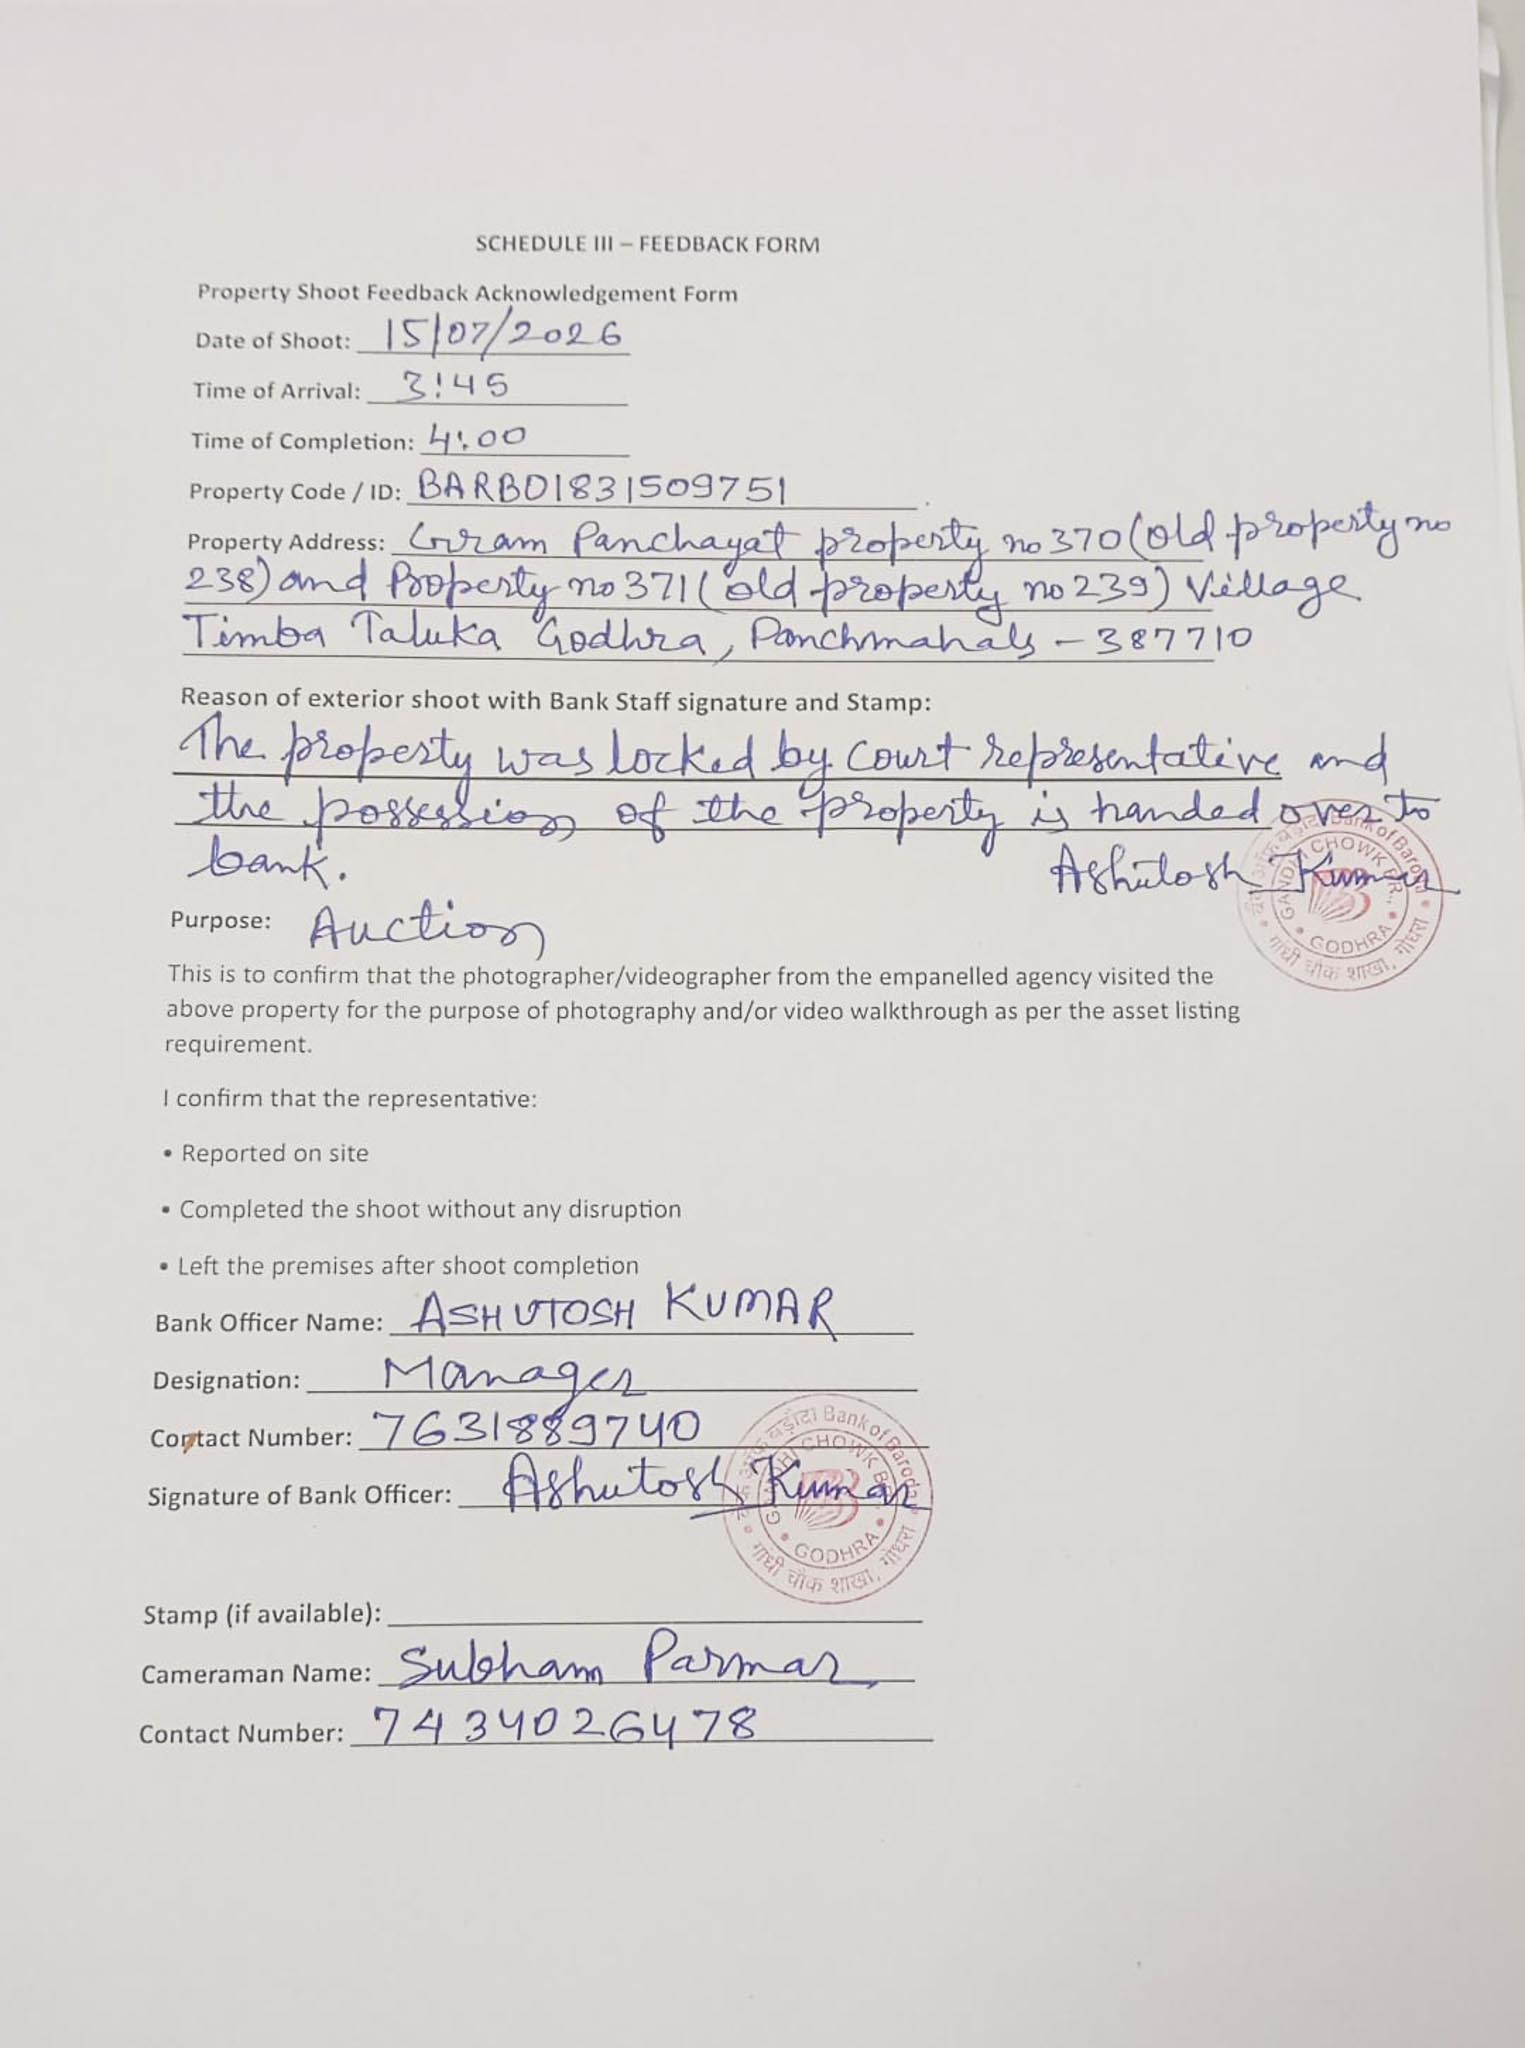 SCHEDULE III – FEEDBACK FORM
Property Shoot Feedback Acknowledgement Form
Date of Shoot: 15/07/2026
Time of Arrival: 3:45
Time of Completion: 4:00
Property Code / ID: BARB01831509751
Property Address: Gram Panchayat property no 370 (old property no
238) and Property no 371 (old property no 239) Village
Timba Taluka Godhra, Panchmahals - 387710
Reason of exterior shoot with Bank Staff signature and Stamp:
The property was locked by court representative and
the possession of the property is handed over to
bank.
Ashutosh Kumar
बैंक ऑफ़ बड़ौदा Bank of Baroda
GANDHI CHOWK BR.,
GODHRA
गांधी चौक शाखा, गोधरा
Purpose: Auction
This is to confirm that the photographer/videographer from the empanelled agency visited the
above property for the purpose of photography and/or video walkthrough as per the asset listing
requirement.
I confirm that the representative:
• Reported on site
• Completed the shoot without any disruption
• Left the premises after shoot completion
Bank Officer Name: ASHUTOSH KUMAR
Designation: Manager
Contact Number: 7631889740
Signature of Bank Officer: Ashutosh Kumar
बैंक ऑफ़ बड़ौदा Bank of Baroda
GANDHI CHOWK BR.,
GODHRA
गांधी चौक शाखा, गोधरा
Stamp (if available):
Cameraman Name: Subham Parmar
Contact Number: 7434026478